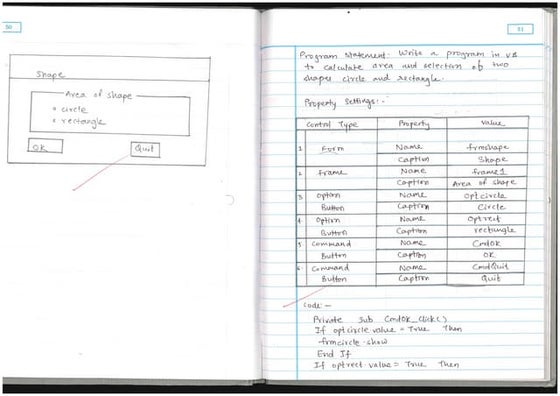 50
Shape
Area of shape
circle
rectangle
OK
Quit
51
Program Statement: Write a program in VB
to calculate area and selection of two
shapes circle and rectangle.
Property Settings:-
Control Type Property Value
1 Form Name frmshape
Caption Shape
2 frame Name frame1
Caption Area of shape
3 option Name Optcircle
Button Caption Circle
4 Option Name Optrect
Button Caption rectangle
5 Command Name CmdOk
Button Caption OK
6 Command Name CmdQuit
Button Caption Quit
Code:-
Private Sub CmdOk_Click()
If optcircle.value = True Then
frmcircle.show
End If
If optrect.value = True Then